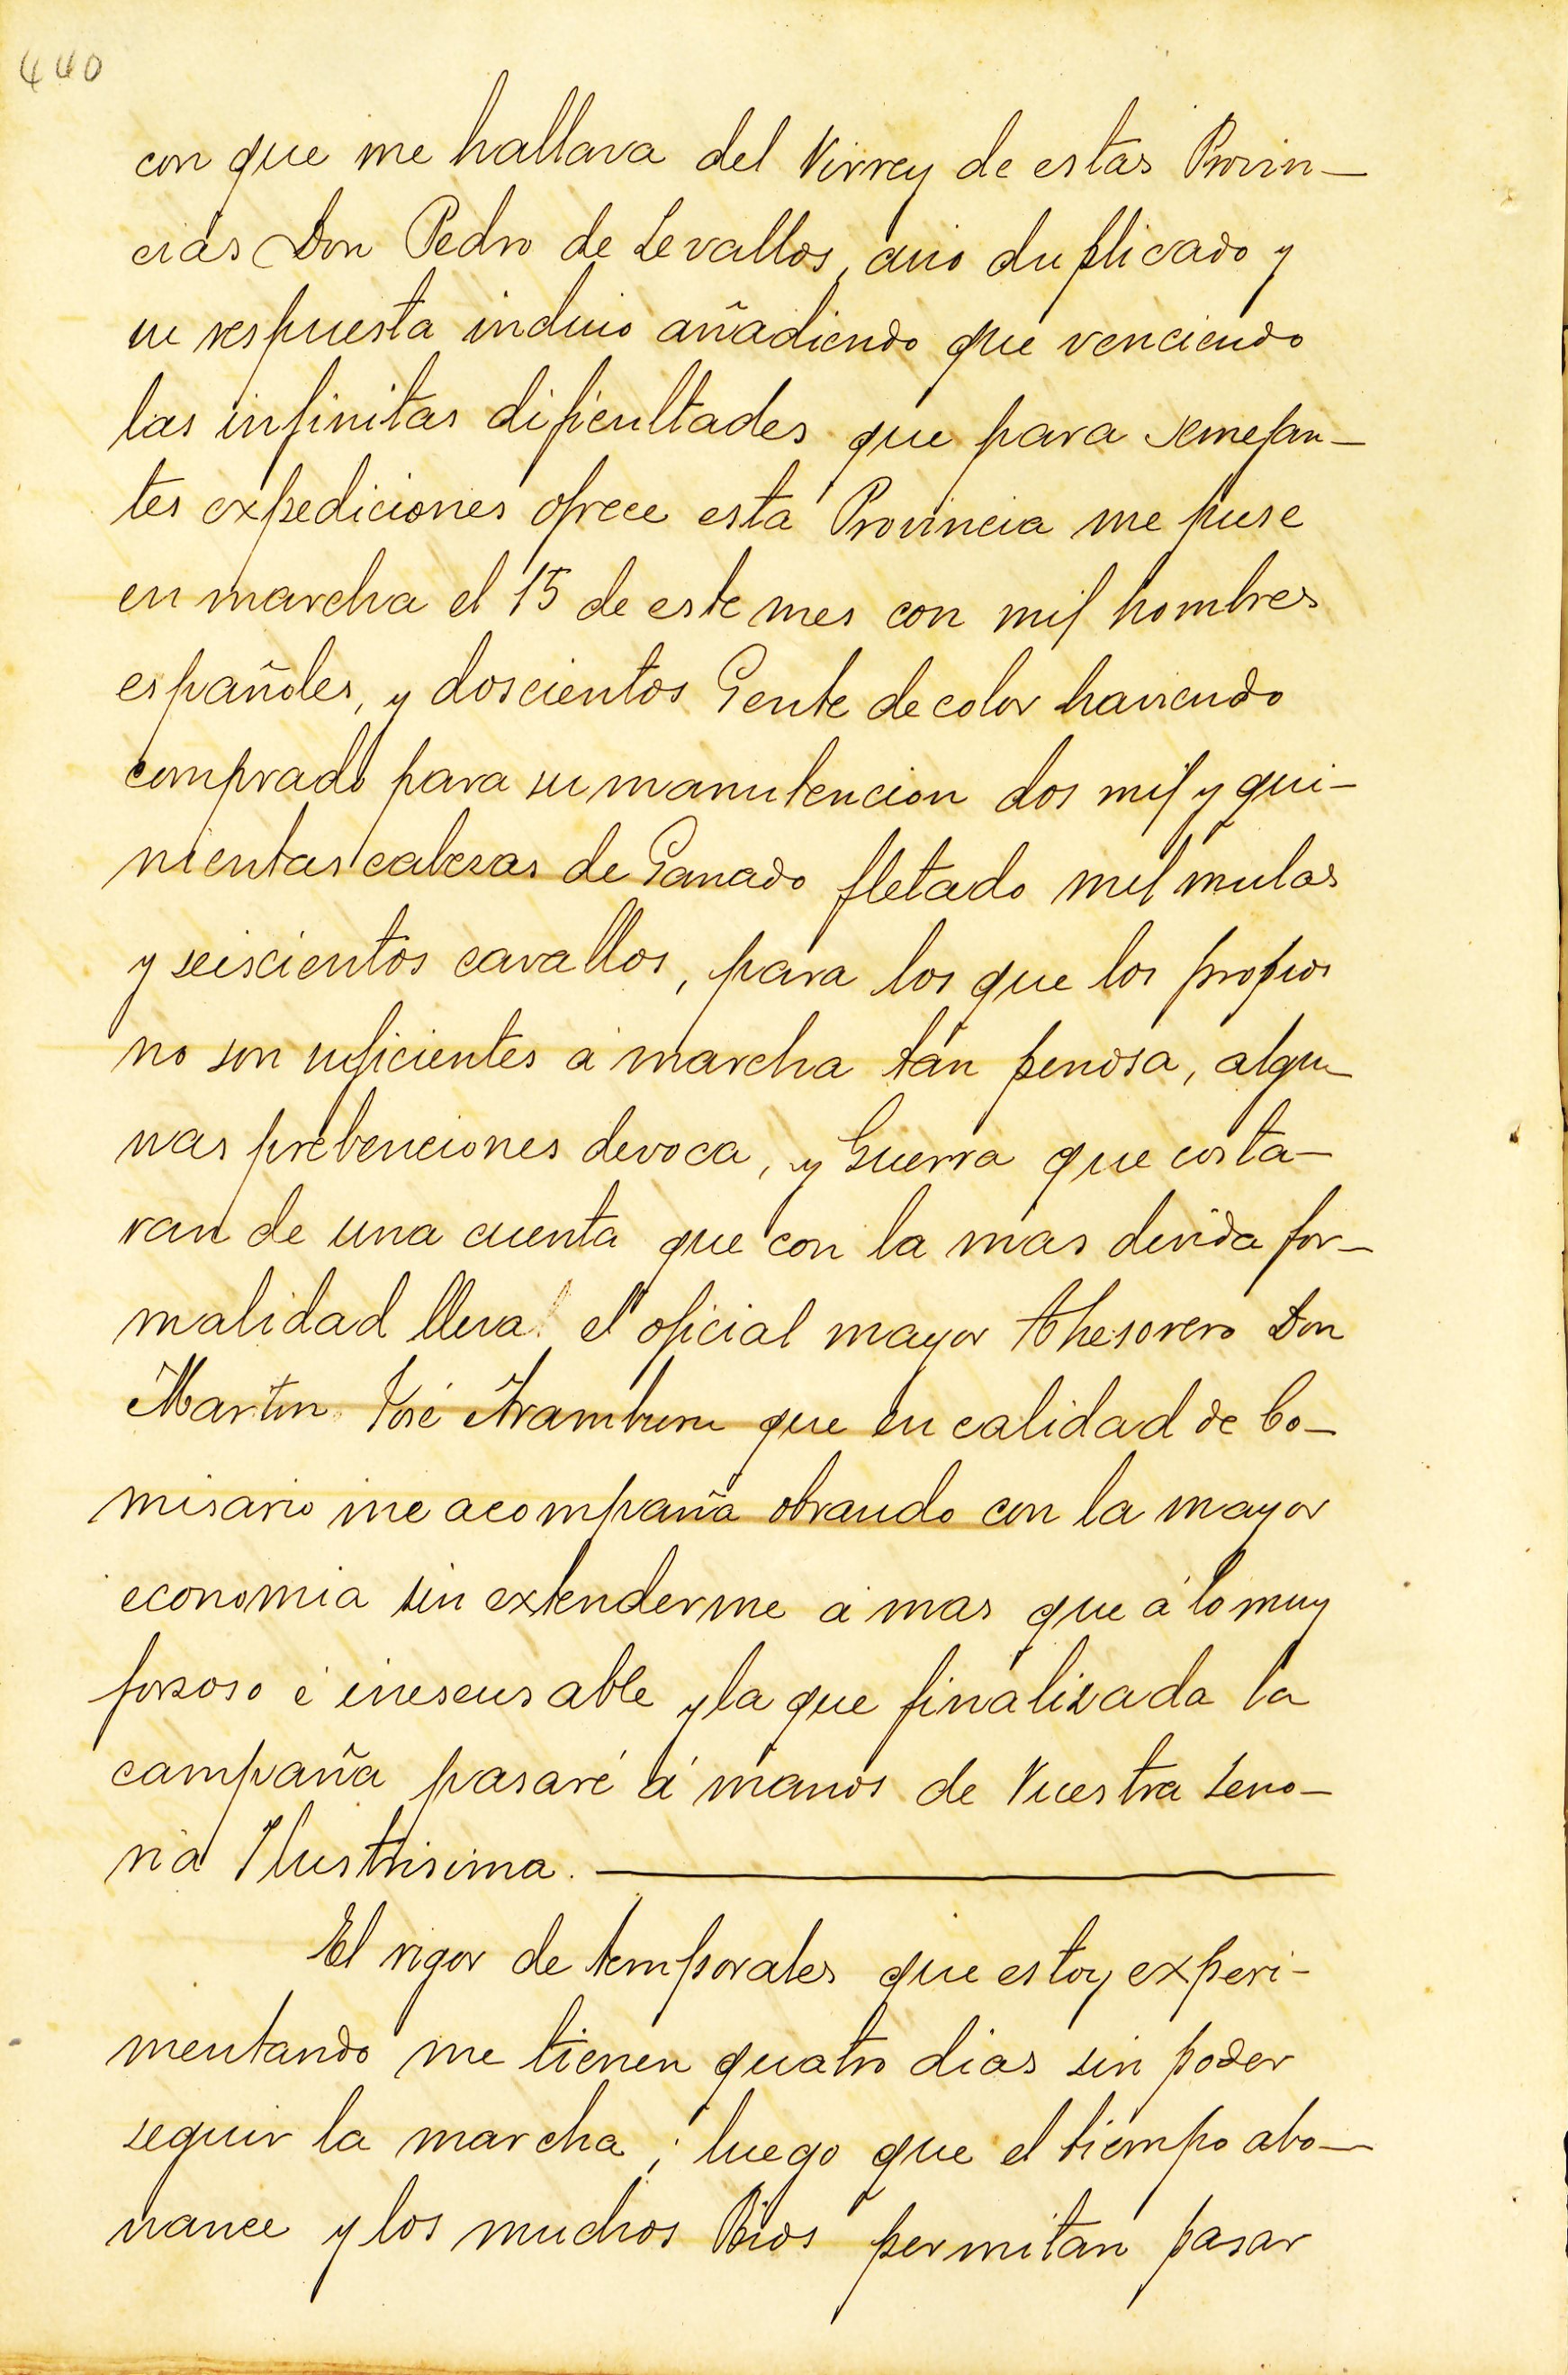 440
con que me hallava del Virrey de estas Provin-
cias Don Pedro de Sevallos, cuio duplicado y
su respuesta incluio añadiendo que venciendo
las infinitas dificultades que para semejan-
tes expediciones ofrece esta Provincia me puse
en marcha el 15 de este mes con mil hombres
españoles, y doscientos Gente de color haviendo
comprado para su manutencion dos mil y qui-
nientas cabezas de Ganado fletado mil mulas
y seiscientos cavallos, para los que los propios
no son suficientes á marcha tán penosa, algu-
nas prebenciones devoca, y Guerra que costa-
ran de una cuenta que con la mas devida for-
malidad lleva el oficial mayor Thesorero Don
Martin José Aramburu que en calidad de Co-
misario me acompaña obrando con la mayor
economia sin extenderme á mas que á lo muy
forzoso é inescusable y la que finalizada la
campaña pasaré á manos de Vuestra Seño-
ria Ilustrisima.
El rigor de temporales que estoy experi-
mentando me tienen quatro dias sin poder
seguir la marcha; luego que el tiempo abo-
nance y los muchos Rios permitan pasar